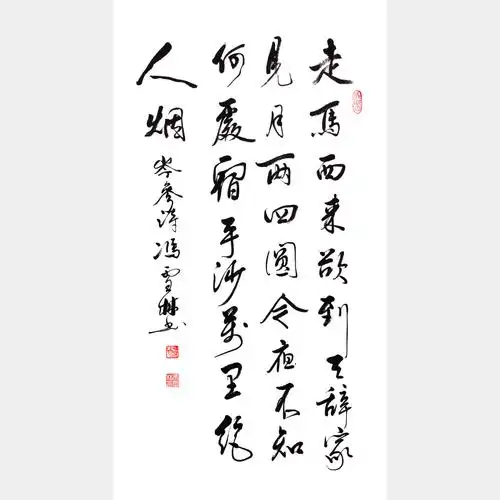 走馬西来欲到天辞家
見月两回圓今夜不知
何處宿平沙萬里絕
人烟
岑參詩馮雪林書